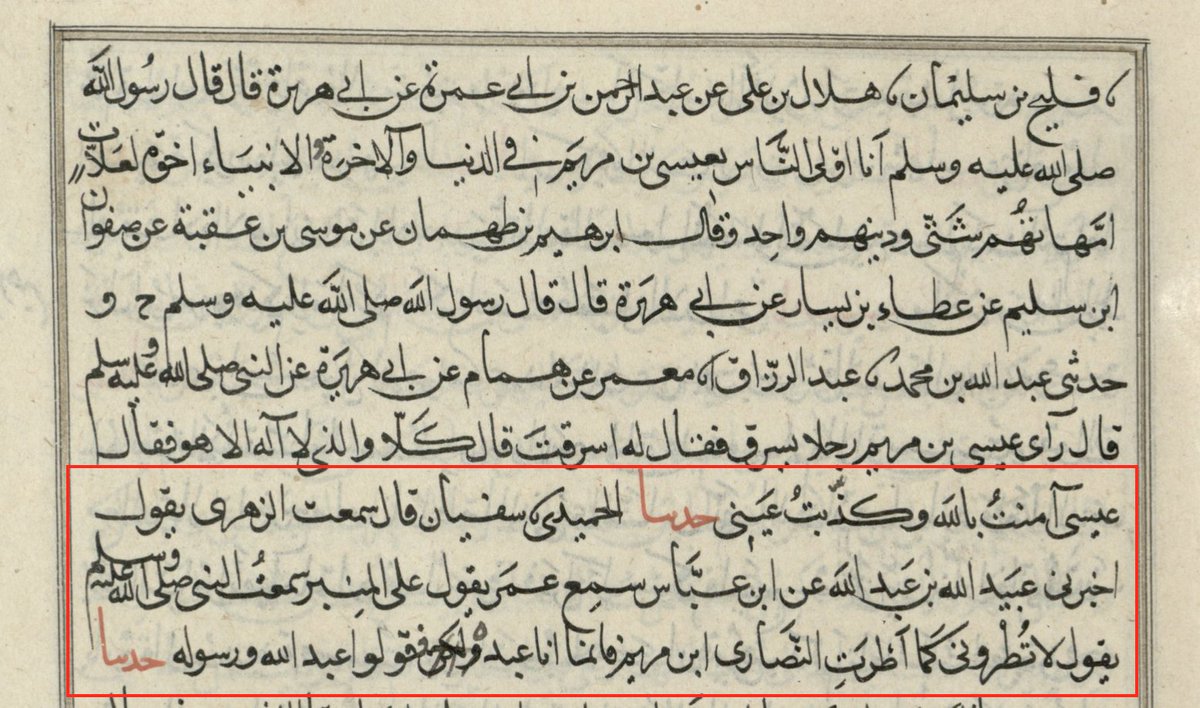 ، فليح بن سليمان ، هلال بن على عن عبد الرحمن بن ابي عمرة عن ابي هريرة قال قال رسول الله
صلى الله عليه وسلم أنا اولى النَّاس بعيسى بن مريم في الدنيا والاخرة والانبياء اخوة لعَلاَّتٍ
امّهاتهُم شَتّى ودينهم واحِد وقال ابرهيم بن طهمان عن موسى بن عقبة عن صفوان
ابن سليم عن عطاء بن يسار عن ابي هريرة قال قال رسول الله صلى الله عليه وسلم ح و
حدثنى عبد الله بن محمد ، عبد الرزاق ، معمر عن همام عن ابي هريرة عن النبى صلى الله عليه وسلم
قال رآى عيسى بن مريم رجلا يسرق فقال له اسرقتَ قال كَلاّ والذى لا آله الا هو فقال
عيسى آمنتُ بالله وكذّبتُ عَينِى حدثنا الحميدى ، سفيان قال سمعت الزهرى يقول
اخبرنى عُبَيد الله بن عَبد الله عن ابن عبَّاس سمِع عمَر يقول على المِنبر سمعتُ النبى صلى الله عليه وسلم
يقول لا تُطْرُونى كَمَا أَطْرَتِ النَّصَارى ابن مريم فانمَا انا عبده فقولوا عبد الله ورسوله حدثنا